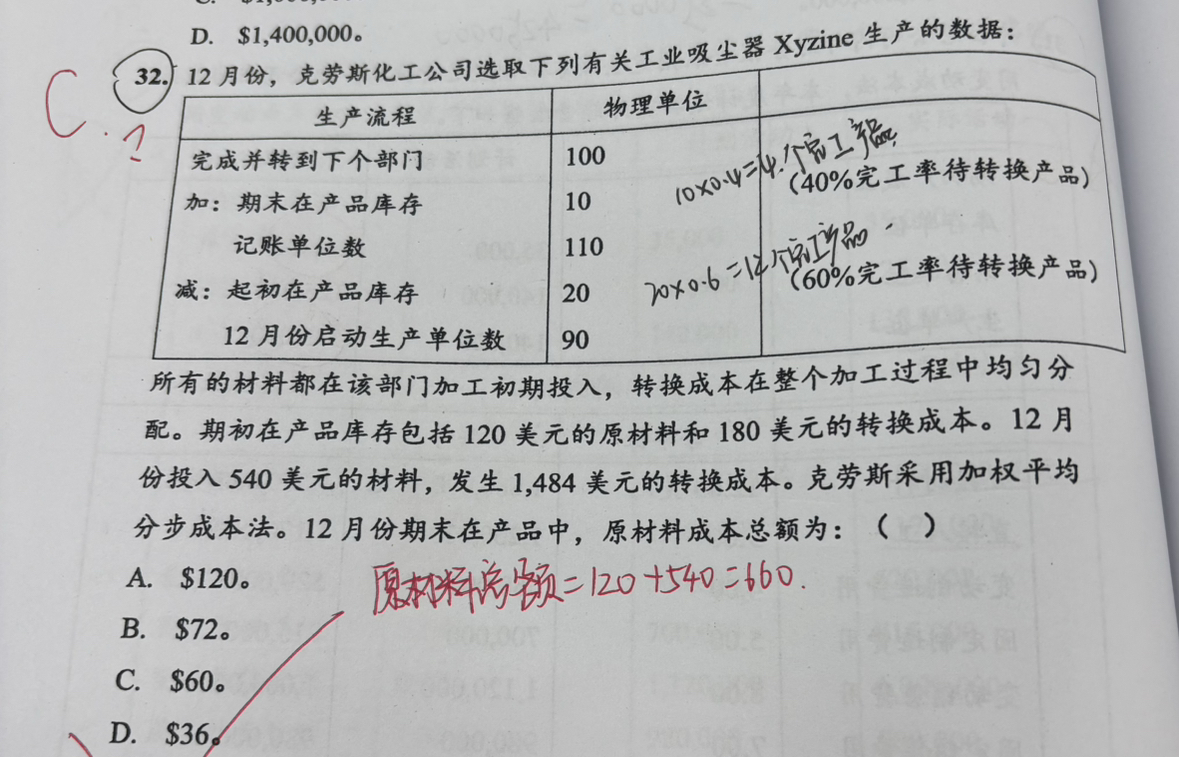 D. $1,400,000。
C.?
32. 12月份，克劳斯化工公司选取下列有关工业吸尘器 Xyzine 生产的数据：
生产流程 物理单位
完成并转到下个部门 100
10×0.4=4个完工产品
加：期末在产品库存 10 (40%完工率待转换产品)
记账单位数 110
20×0.6=12个完工产品
减：起初在产品库存 20 (60%完工率待转换产品)
12月份启动生产单位数 90
所有的材料都在该部门加工初期投入，转换成本在整个加工过程中均匀分
配。期初在产品库存包括 120 美元的原材料和 180 美元的转换成本。12 月
份投入 540 美元的材料，发生 1,484 美元的转换成本。克劳斯采用加权平均
分步成本法。12 月份期末在产品中，原材料成本总额为：（ ）
A. $120。
原材料总额=120+540=660.
B. $72。
C. $60。
D. $36。